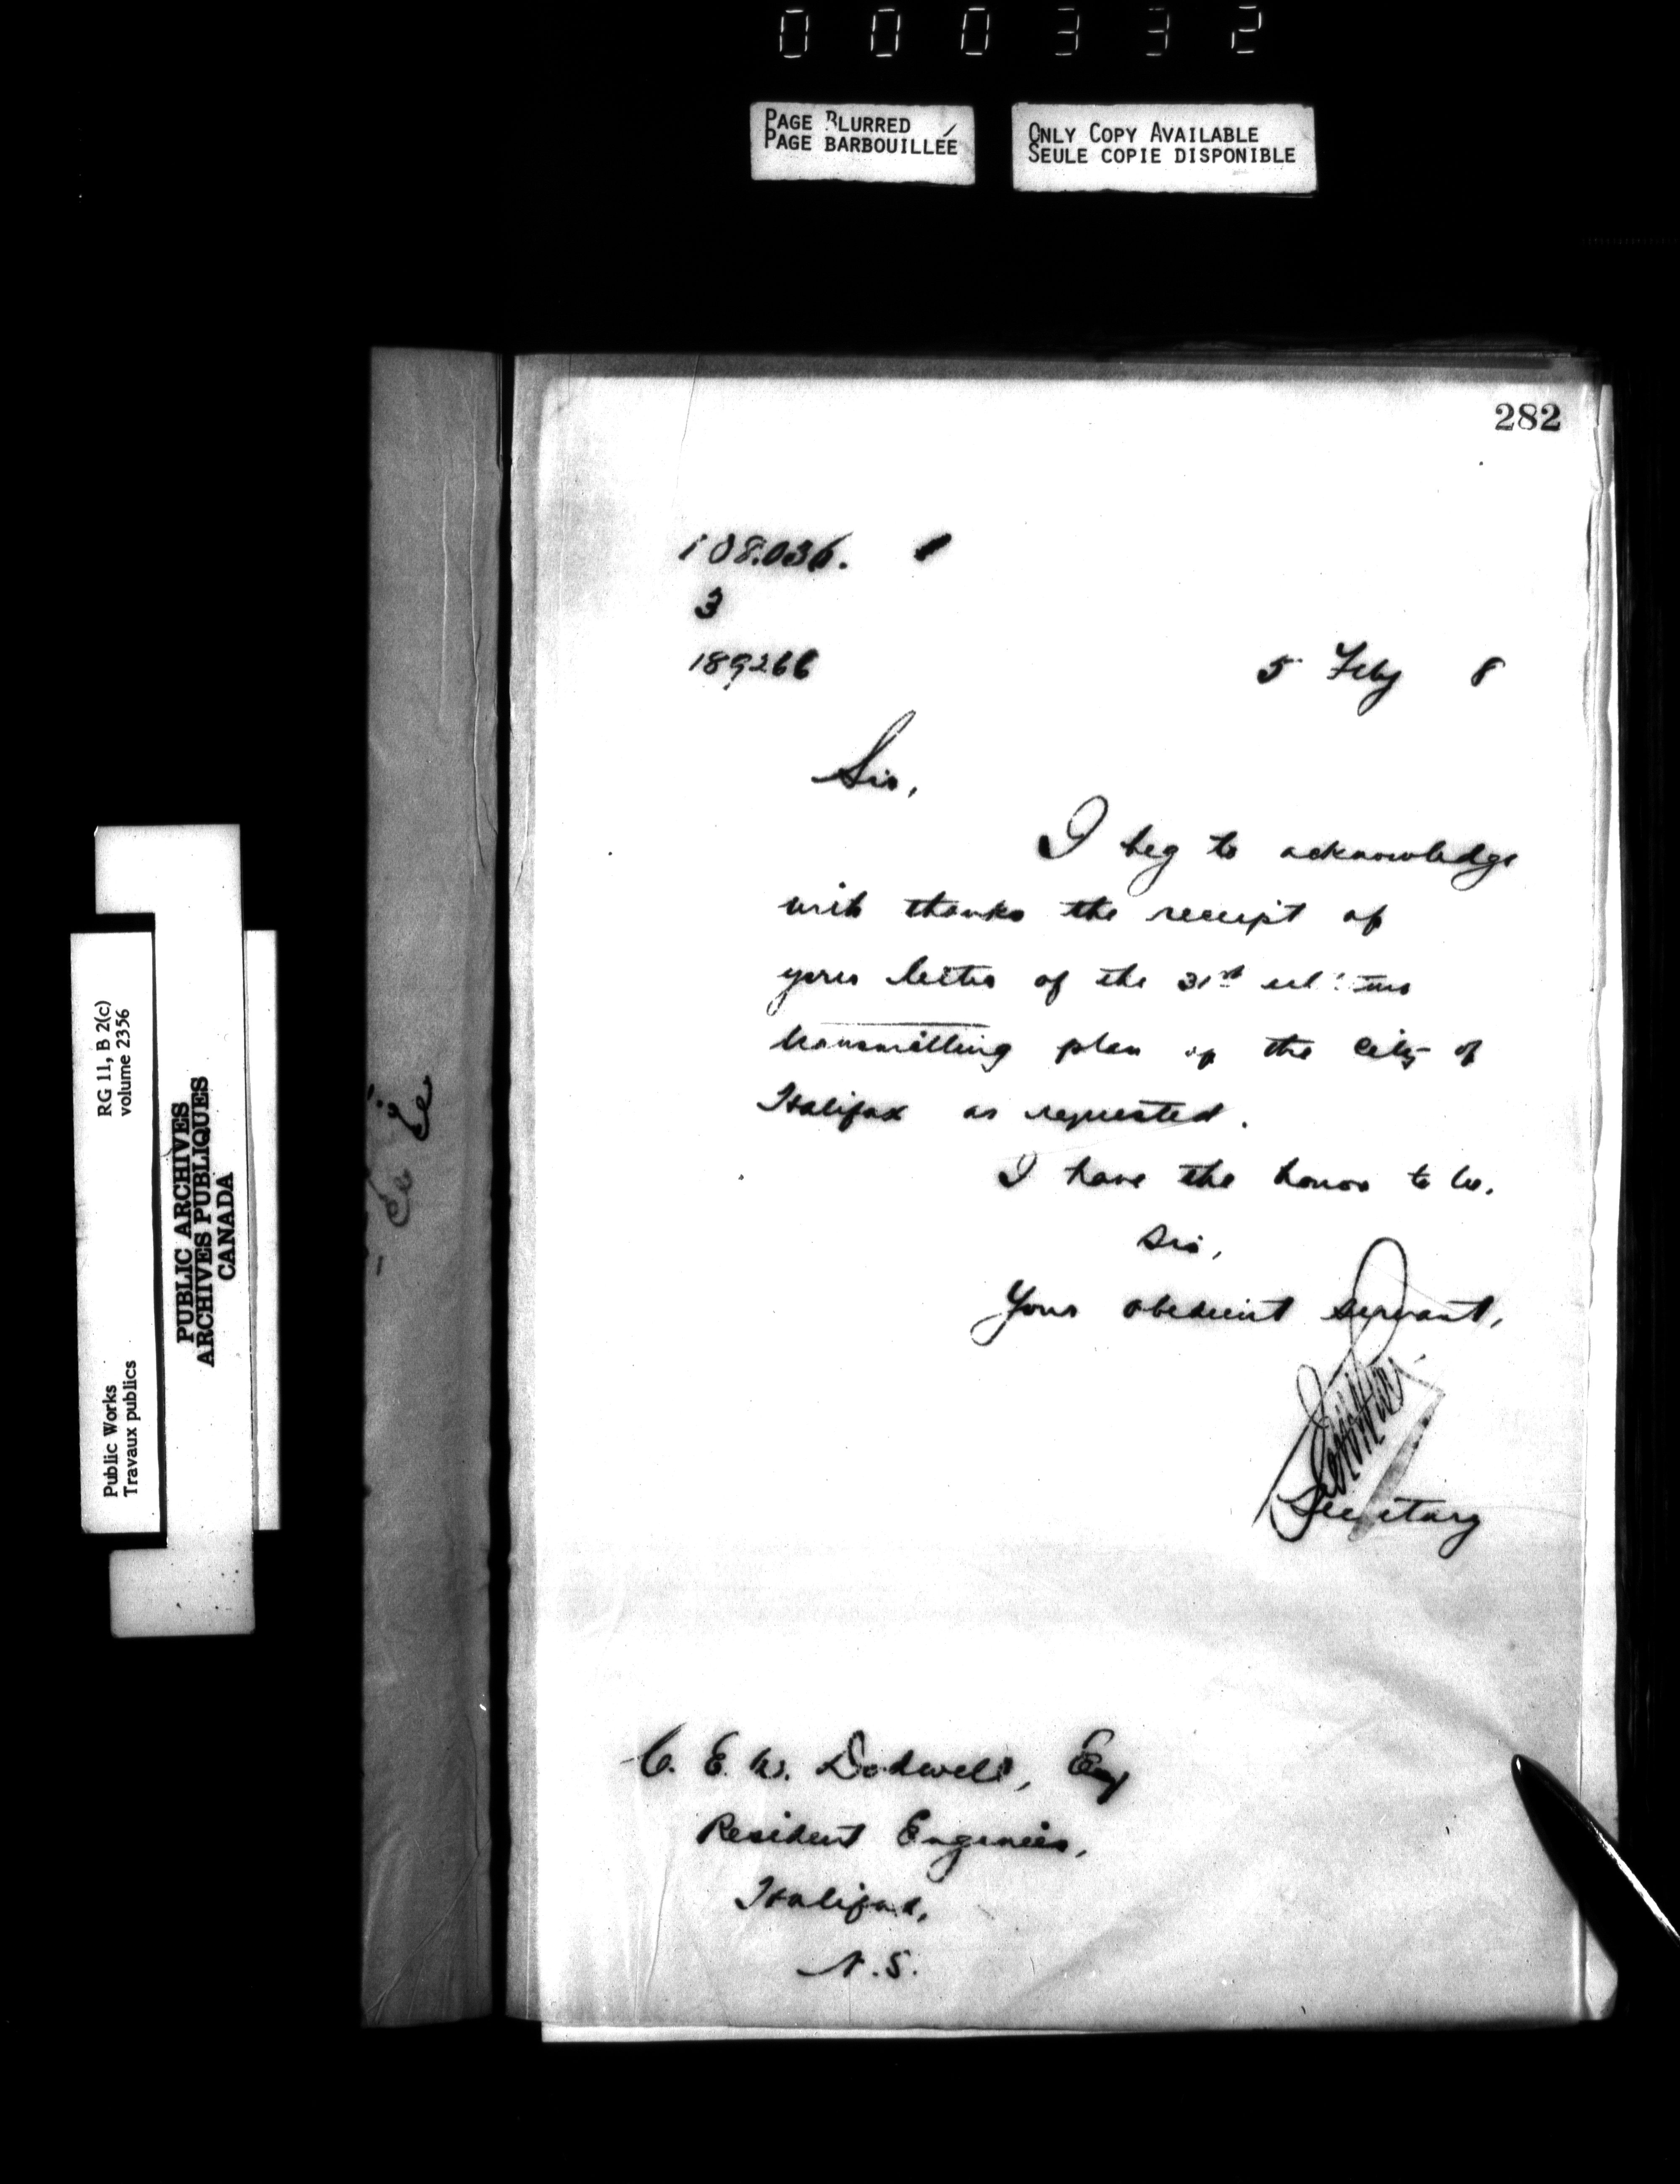 000332
PAGE BLURRED
PAGE BARBOUILLÉE
ONLY COPY AVAILABLE
SEULE COPIE DISPONIBLE
282
108.036.
3
189266
5 Feby 8
Sir,
I beg to acknowledge
with thanks the receipt of
your letter of the 31st ultimo
transmitting plan of the City of
Halifax as requested.
I have the honor to be,
Sir,
Your obedient servant,
Secretary
C. E. W. Dodwell, Esq
Resident Engineer,
Halifax,
N.S.
RG 11, B 2(c)
volume 2356
Public Works
Travaux publics
PUBLIC ARCHIVES
ARCHIVES PUBLIQUES
CANADA